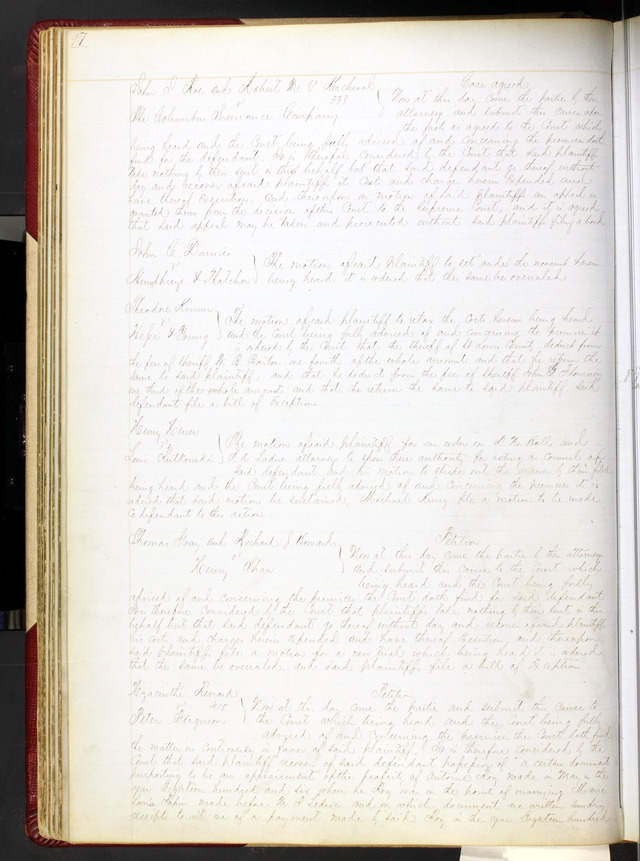 27
John J Roe and Robert M V Kercheval
Case agreed
vs
Now at this day come the parties by their
The Columbus Insurance Company
attorneys and submit this cause upon
the facts as agreed to the Court which
being heard and the Court being fully advised of and concerning the premises doth
find for the defendant. It is therefore considered by the Court that said plaintiffs
take nothing by their suit in this behalf but that said defendant go thereof without
day and recover of said plaintiffs its costs and charges herein expended and
have thereof execution, and thereupon on motion of said plaintiff an appeal is
granted them from the decision of this Court to the Supreme Court, and it is agreed
that said appeal may be taken and prosecuted without said plaintiff filing a bond
John C
The motion of said Plaintiff to set aside the nonsuit herein
Humphreys & Thatcher
being heard it is ordered that the same be overruled
Theodore
The motion of said plaintiff to retax the costs herein being heard
& Young
and the Court being fully advised of and concerning the premises it is
ordered by the Court that the Sheriff of St Louis County deduct from
the fees of Sheriff one fourth of the whole amount and that he return the
same to said plaintiff, and that he deduct from the fees of Sheriff John
one third of the whole amount and that he return the same to said plaintiff said
defendant file a bill of Exceptions
Henry
The motion of said plaintiff for an order on and
Louis
attorneys to show their authority for acting as counsel of
said defendant and his motion to strike out the answer by them filed
being heard and the Court being fully advised of and concerning the premises it is
ordered that said motions be sustained, Michael files a motion to be made
Co defendant to this action
Thomas Gray and Richard J Howard
Petition
vs
Now at this day come the parties by their attorneys
Henry Shaw
and submit this cause to the Court which
being heard and the Court being fully
advised of and concerning the premises the Court doth find for said defendant
It is therefore considered by the Court that plaintiffs take nothing by their suit in this
behalf but that said defendant go thereof without day and recover of said plaintiffs
his costs and charges herein expended and have thereof Execution and thereupon
said plaintiffs file a motion for a new trial which being heard it is ordered
that the same be overruled and said plaintiffs file a bill of Exceptions
Hyacinthe Renard
Petition
vs
Now at this day come the parties and submit this cause to
Peter Ferguson
the Court which being heard and the Court being fully
advised of and concerning the premises the Court doth find
the matters in controversy in favor of said plaintiff. It is therefore considered by the
Court that said plaintiff recover of said defendant possession of "a certain document
purporting to be an appraisement of the property of Antoine Roy made in May in the
year Eighteen hundred and six when he Roy was on the point of marrying Marie
Louis made before and on which document are written sundry
receipts to wit one of a payment made by said Roy in the year Eighteen hundred